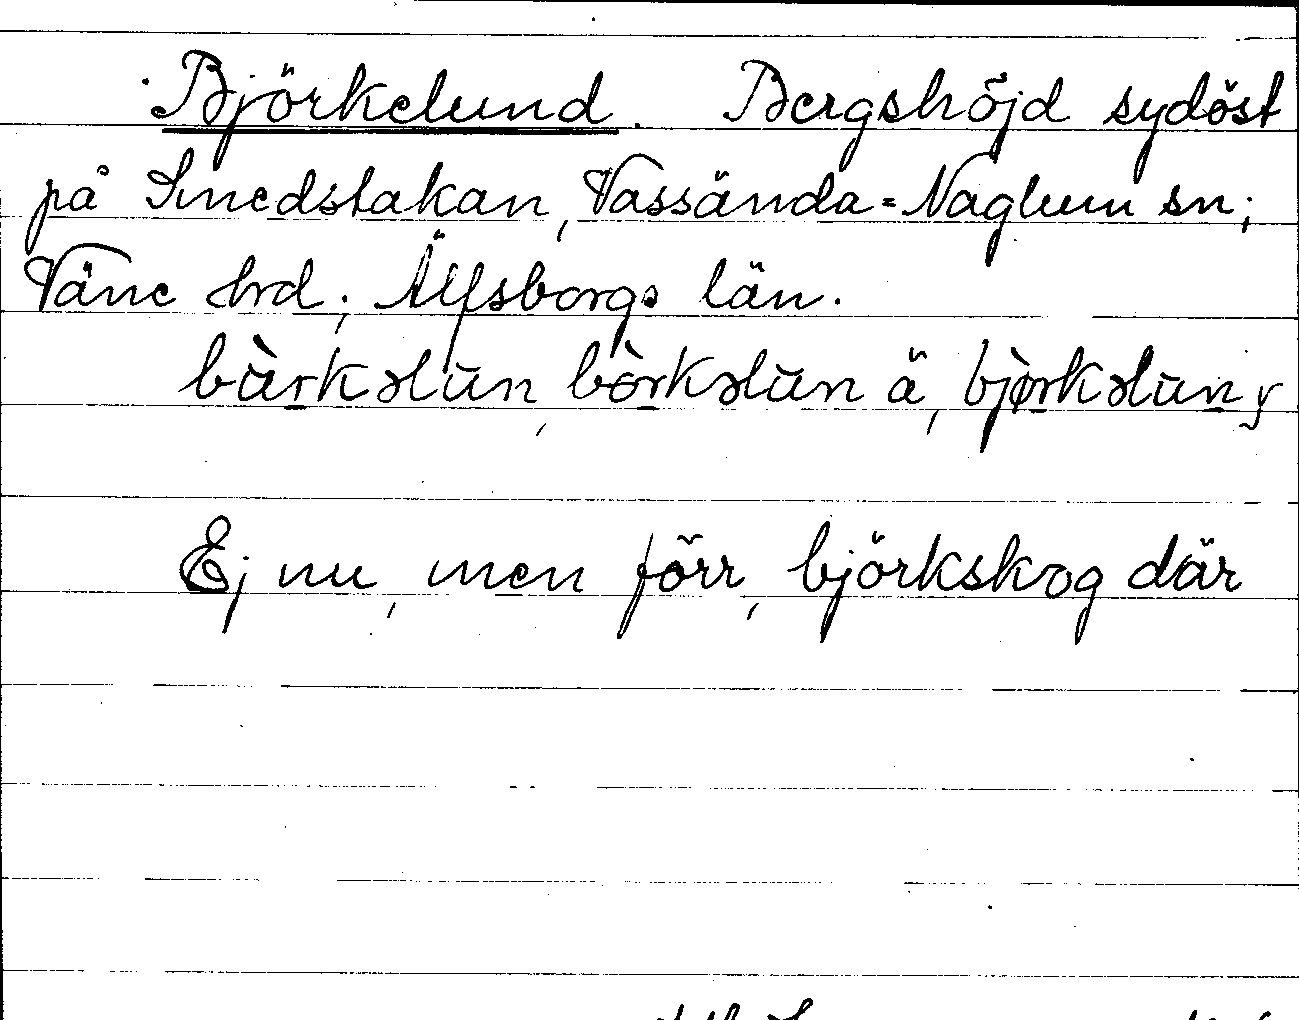 Björkelund. Bergshöjd sydöst
på Smedstakan, Vassända-Naglum sn;
Väne hrd; Älfsborgs län.
bàrkəlūn, bòrkəlūn ä, bjòrkəlūn y
Ej nu, men förr, björkskog där